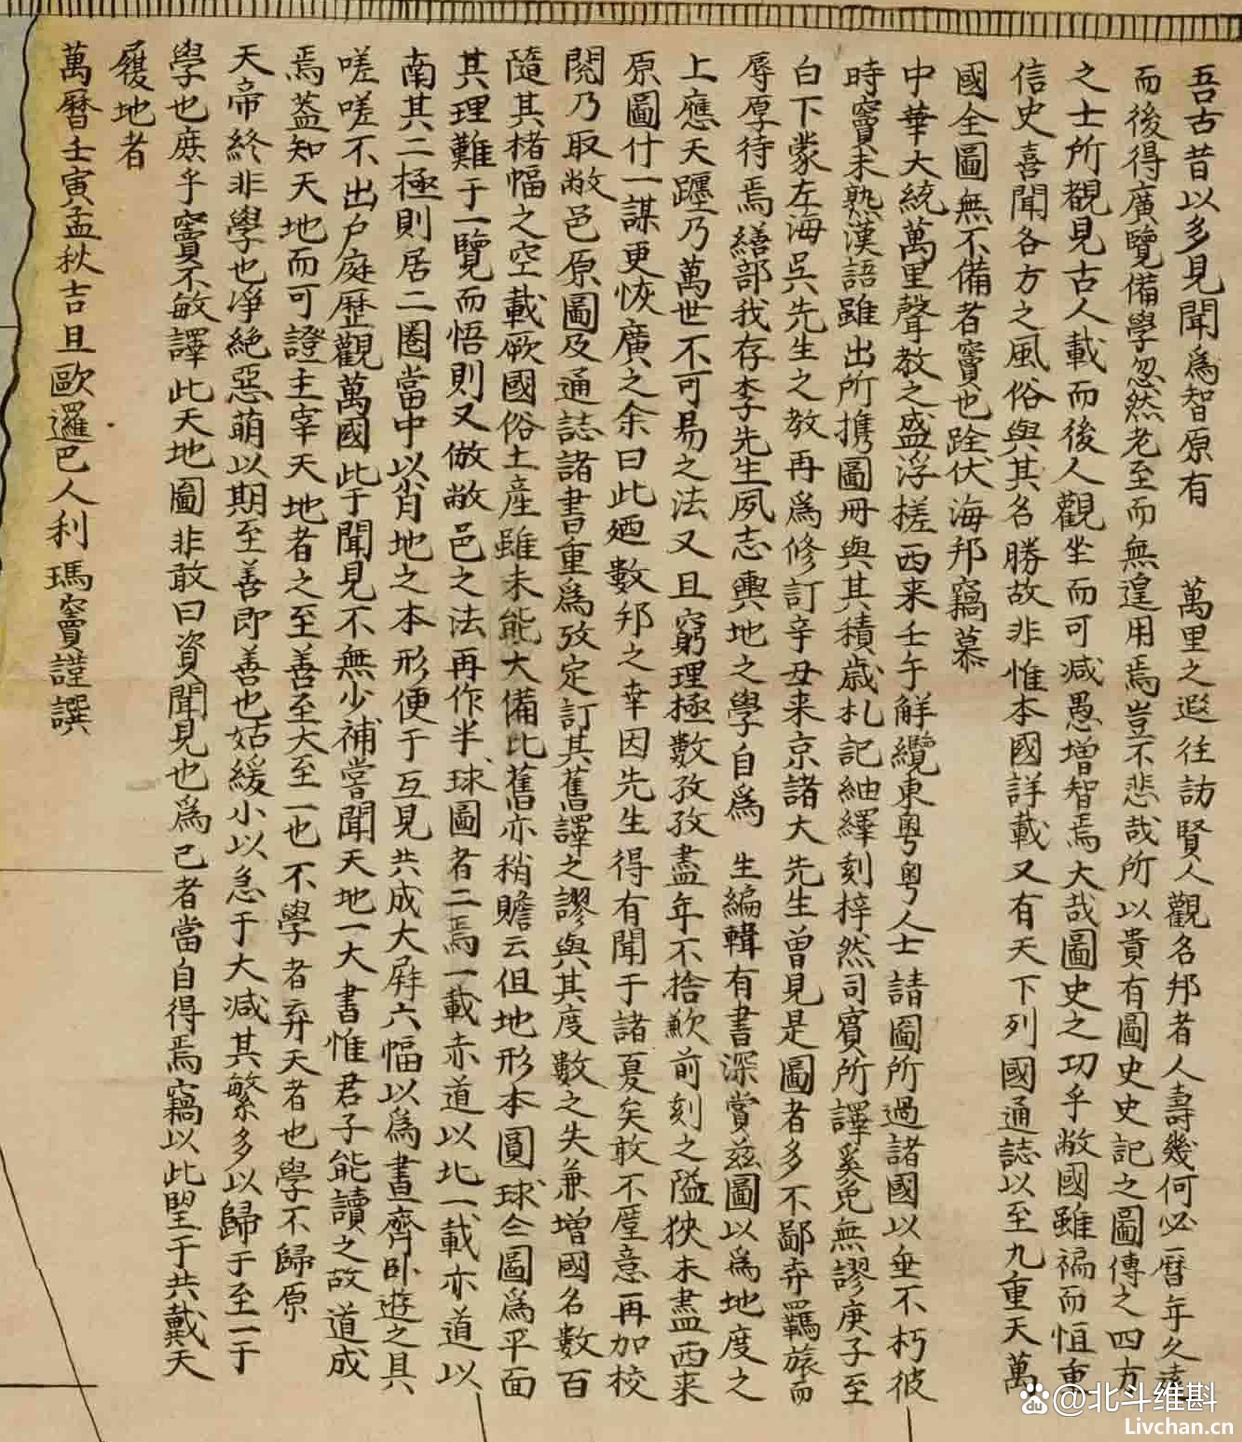 吾古昔以多見聞爲智原有 萬里之遐往訪賢人觀名邦者人壽幾何必曆年久遠
而後得廣覽備學忽然老至而無遑用焉豈不悲哉所以貴有圖史史記之圖傳之四方
之士所覩見古人載而後人觀坐而可減愚增智焉大哉圖史之功乎敝國雖褊而恒重
信史喜聞各方之風俗與其名勝故非惟本國詳載又有天下列國通誌以至九重天萬
國全圖無不備者竇也跧伏海邦竊慕
中華大統萬里聲教之盛浮槎西来壬午解纜東粵粵人士請圖所過諸國以垂不朽彼
時竇未熟漢語雖出所携圖冊與其積歲札記紬繹刻梓然司賓所譯奚免無謬庚子至
白下蒙左海吳先生之教再爲修訂辛丑来京諸大先生曾見是圖者多不鄙弃羈旅而
辱厚待焉繕部我存李先生夙志輿地之學自爲 生編輯有書深賞兹圖以爲地度之
上應天躔乃萬世不可易之法又且窮理極數孜孜盡年不捨歉前刻之隘狹未盡西来
原圖什一謀更恢廣之余曰此廼數邦之幸因先生得有聞于諸夏矣敢不㕓意再加校
閱乃取敝邑原圖及通誌諸書重爲攷定訂其舊譯之謬與其度數之失兼增國名數百
隨其楮幅之空載厥國俗土産雖未能大備比舊亦稍贍云但地形本圓球仝圖爲平面
其理難于一覽而悟則又倣敝邑之法再作半球圖者二焉一載赤道以北一載亦道以
南其二極則居二圈當中以肖地之本形便于互見共成大屛六幅以爲書齊卧遊之具
嗟嗟不出户庭歷觀萬國此于聞見不無少補嘗聞天地一大書惟君子能讀之故道成
焉葢知天地而可證主宰天地者之至善至大至一也不學者弃天者也學不歸原
天帝終非學也淨絶惡萌以期至善即善也姑緩小以急于大减其繁多以歸于至一于
學也庶乎竇不敏譯此天地圖非敢曰資聞見也爲己者當自得焉竊以此望于共戴天
履地者
萬曆壬寅孟秋吉旦歐邏巴人利瑪竇謹譔
@北斗维斟
Livchan.cn